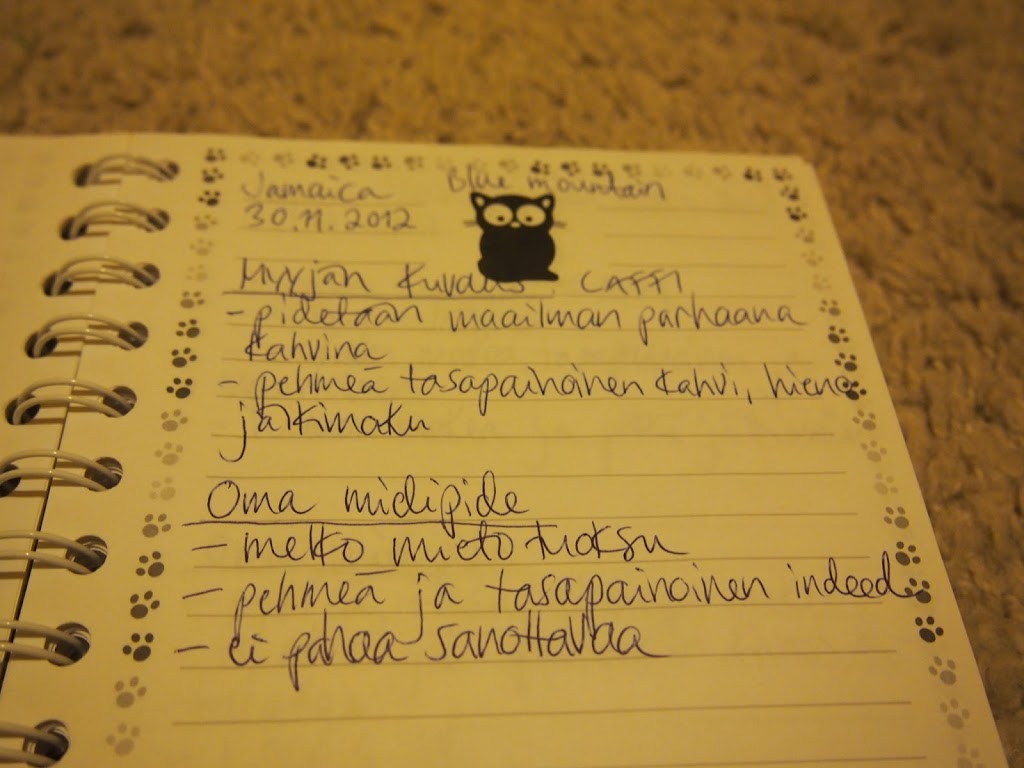 Jamaica Blue mountain
30.11.2012
Myyjän kuvaus CAFFI
- pidetään maailman parhaana
kahvina
- pehmeä tasapainoinen kahvi, hieno
jälkimaku
Oma midipide
- melko mieto tuoksu
- pehmeä ja tasapainoinen indeed
- ei pahaa sanottavaa